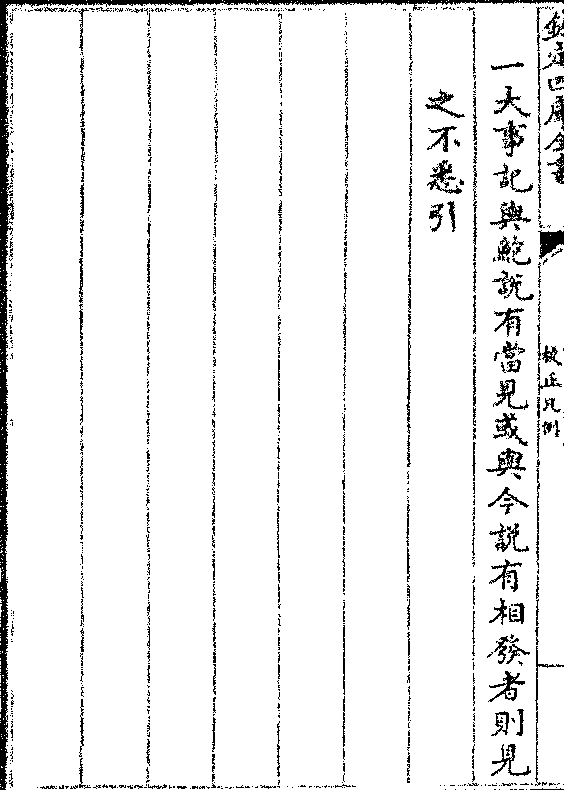 欽定四庫全書
校正凡例
一大事記與鮑說有當見或與今說有相發者則見
之不悉引